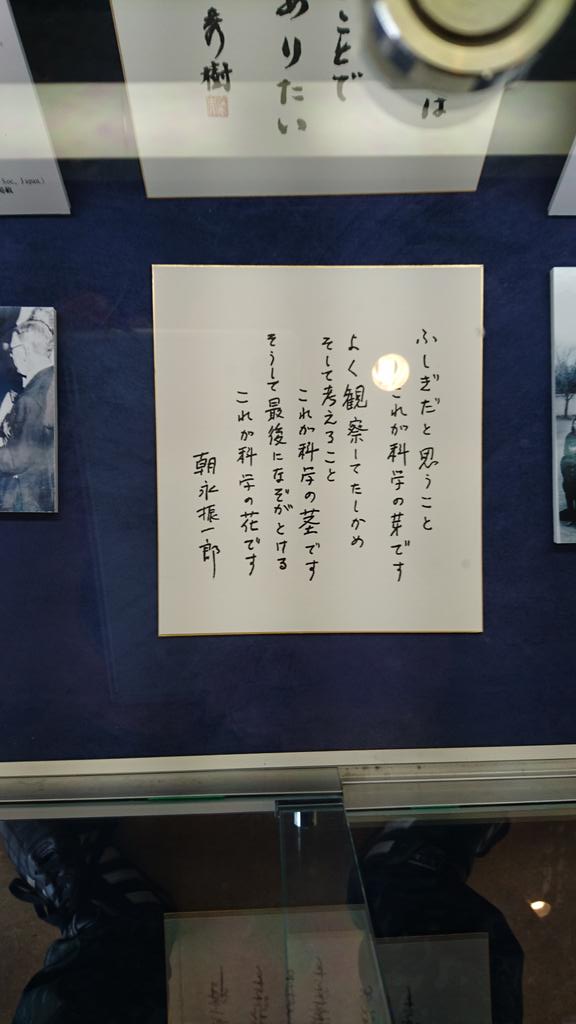 は
ことで
ありたい
秀樹
Soc. Japan.)
ふしぎだと思うこと
これが科学の芽です
よく観察してたしかめ
そして考えること
これが科学の茎です
そうして最後になぞがとける
これが科学の花です
朝永振一郎